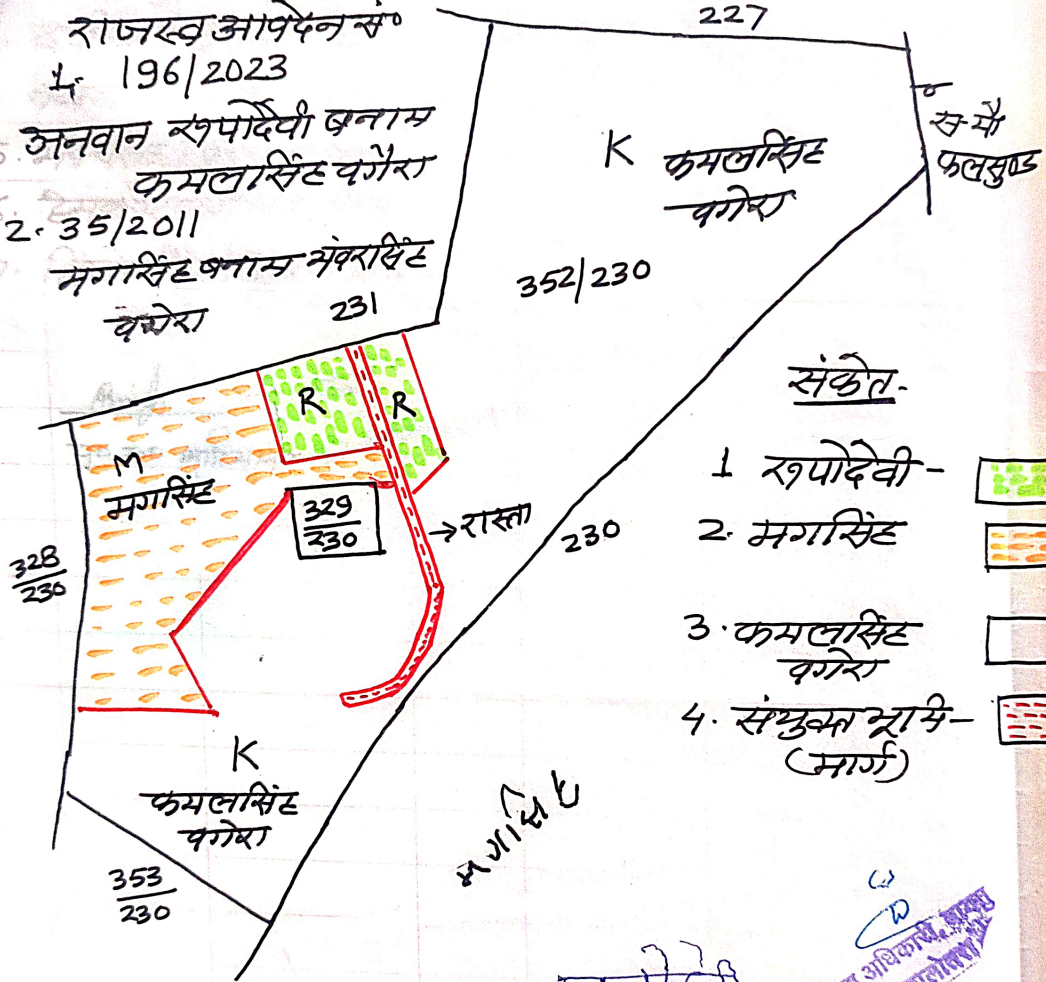 राजस्व आवेदन सं०
1. 196/2023
अनवान रूपोदेवी बनाम
कमलसिंह वगैरा
2. 35/2011
मगसिंह बनाम भंवरसिंह
वगेरा
227
231
K कमलसिंह
वगेरा
352/230
स मौ
फलसुण्ड
R
R
M
मगसिंह
329
230
→ रास्ता
328
230
230
K
कमलसिंह
वगेरा
353
230
संकेत-
1 रूपोदेवी-
2. मगसिंह
3. कमलसिंह
वगेरा
4. संयुक्त भूमि-
(मार्ग)
मगसिंह
अधिकारी,